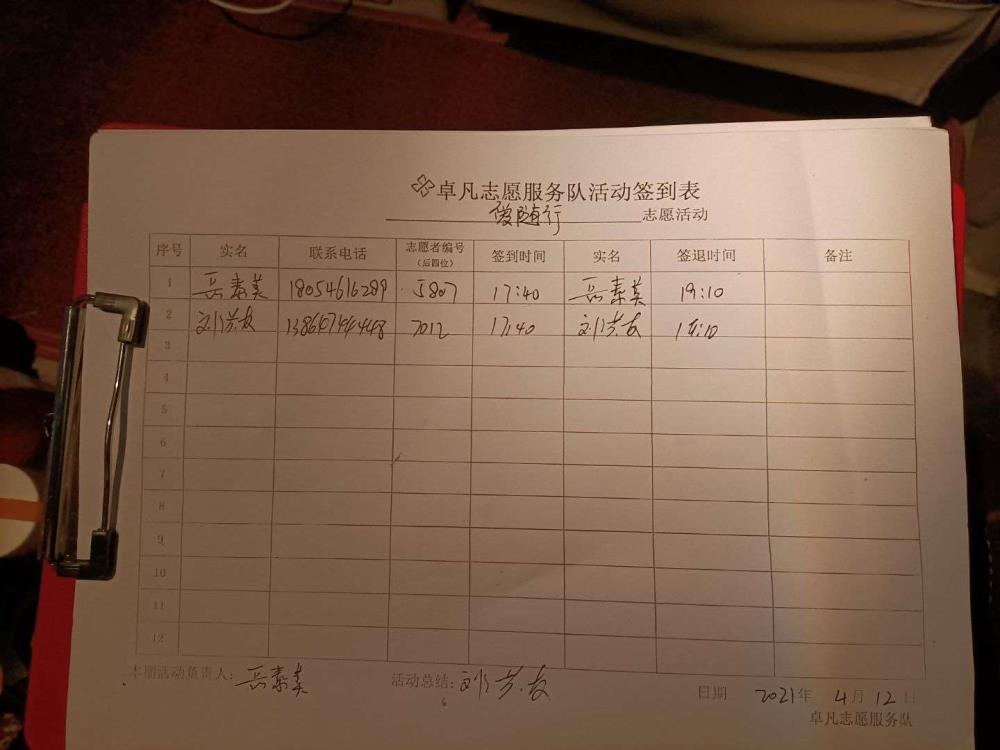 卓凡志愿服务队活动签到表
爱随行 志愿活动
序号 实名 联系电话 志愿者编号（后四位） 签到时间 实名 签退时间 备注
1 岳素美 18054616289 5807 17:40 岳素美 19:10
2 刘芳友 7012 17:40 刘芳友
3
4
5
6
7
8
9
10
11
12
本期活动负责人：岳素美 活动总结：刘芳友 日期 2021年 4月 12日
卓凡志愿服务队